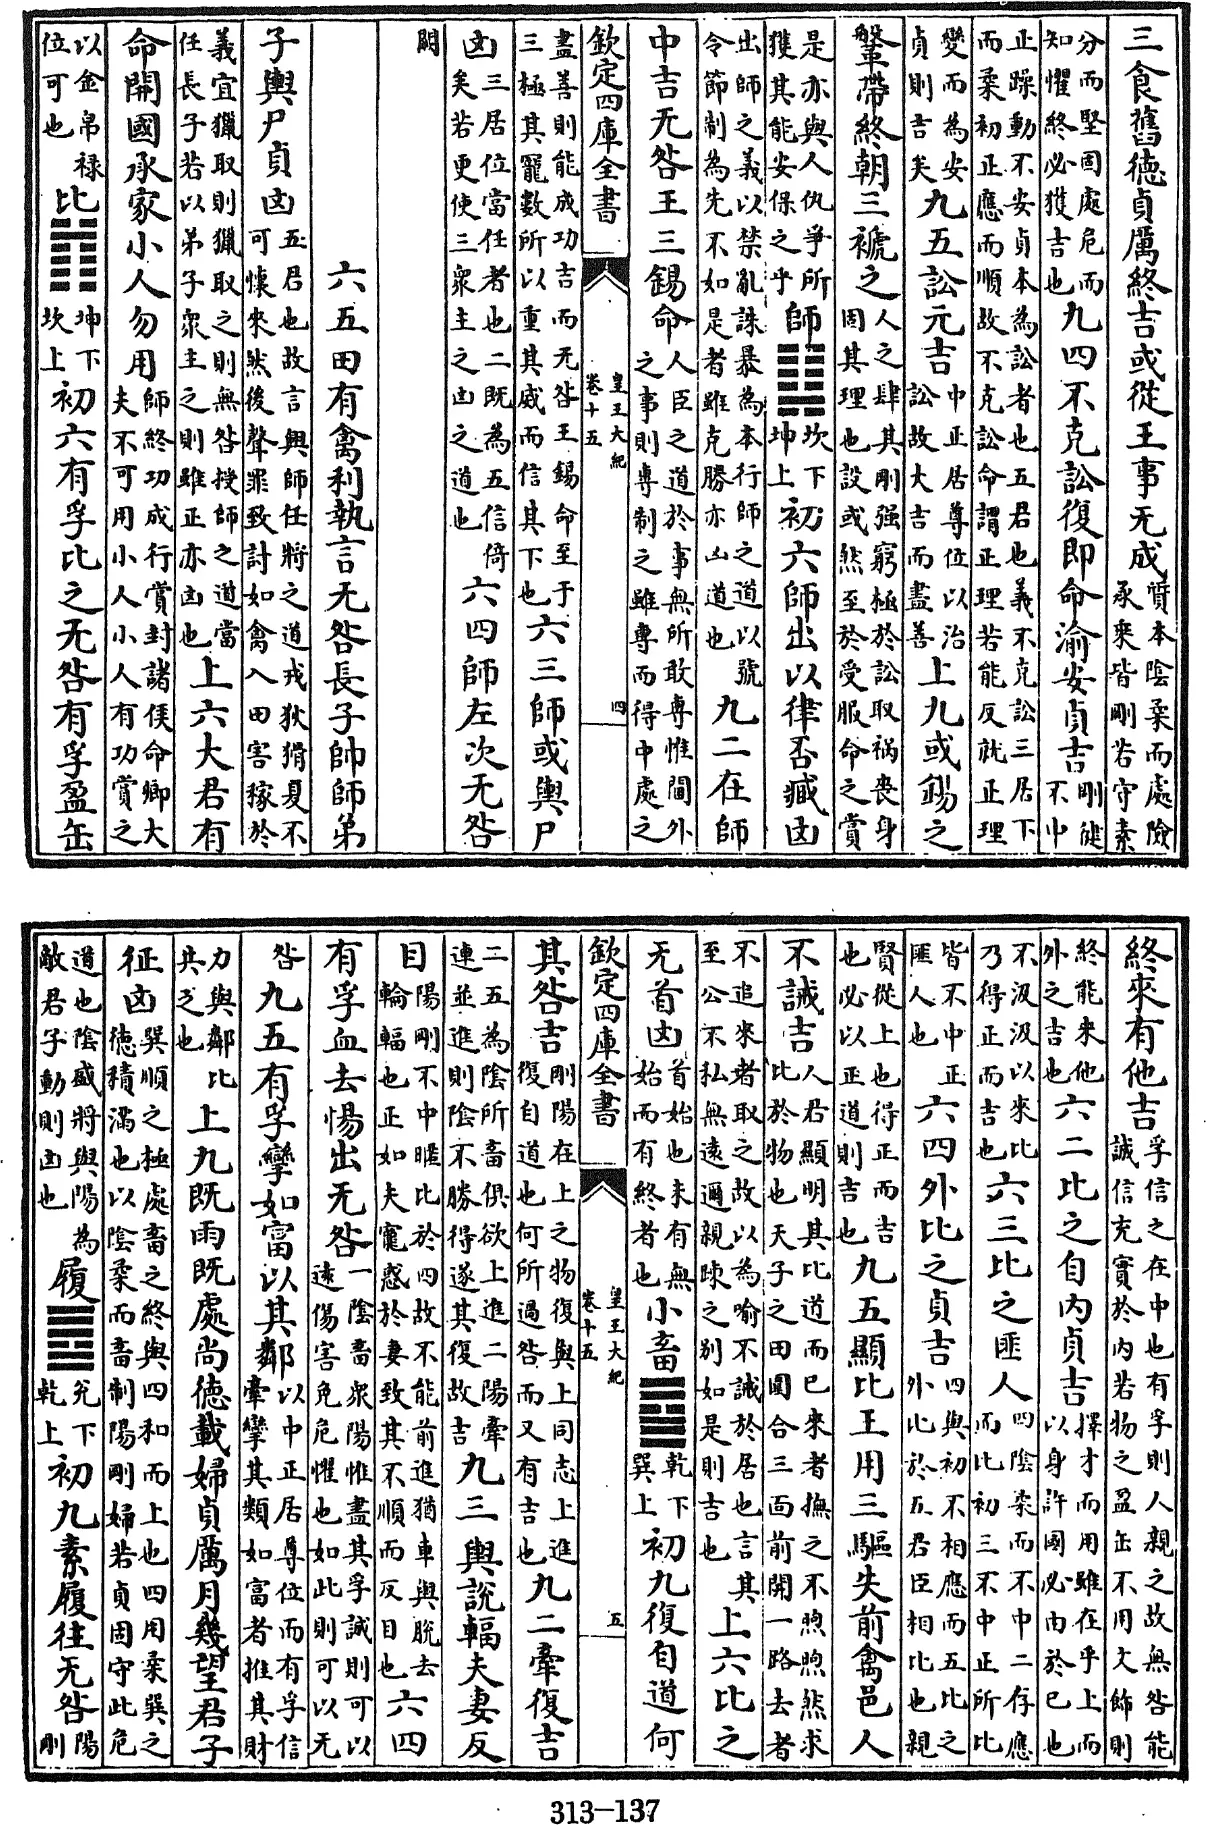 三食舊徳貞厲終吉或從王事无成質本陰柔而處險承乘皆剛若守素
分而堅固處危而知懼終必獲吉也九四不克訟復即命渝安貞吉剛健不中
正躁動不安貞本為訟者也五君也義不克訟三居下而柔初正應而順故不克訟命謂正理若能反就正理
變而為安貞則吉矣九五訟元吉中正居尊位以治訟故大吉而盡善上九或錫之
鞶帶終朝三褫之人之肆其剛强窮極於訟取禍喪身固其理也設或然至於受服命之賞
是亦與人仇爭所獲其能安保之乎師䷆坎下坤上初六師出以律否臧凶
出師之義以禁亂誅暴為本行師之道以號令節制為先不如是者雖克勝亦凶道也九二在師
中吉无咎王三錫命人臣之道於事無所敢專惟閫外之事則專制之雖專而得中處之
欽定四庫全書 皇王大紀 卷十五 四
盡善則能成功吉而无咎王錫命至于三極其寵數所以重其威而信其下也六三師或輿尸
凶三居位當任者也二既為五信倚矣若更使三衆主之凶之道也六四師左次无咎
闕
六五田有禽利執言无咎長子帥師弟
子輿尸貞凶五君也故言興師任將之道戎狄猾夏不可懷來然後聲罪致討如禽入田害稼於
義宜獵取則獵取之則無咎授師之道當任長子若以弟子衆主之則雖正亦凶也上六大君有
命開國承家小人勿用師終功成行賞封諸侯命卿大夫不可用小人小人有功賞之
以金帛禄位可也比䷇坤下坎上初六有孚比之无咎有孚盈缶
終來有他吉孚信之在中也有孚則人親之故無咎能誠信充實於内若物之盈缶不用文飾則
終能來他外之吉也六二比之自内貞吉擇才而用雖在乎上而以身許國必由於已也
不汲汲以來比乃得正而吉也六三比之匪人四陰柔而不中二存應而比初三不中正所比
皆不中正匪人也六四外比之貞吉四與初不相應而五比之外比於五君臣相比也親
賢從上也得正而吉也必以正道則吉也九五顯比王用三驅失前禽邑人
不誡吉人君顯明其比道而已來者撫之不煦煦然求比於物也天子之田圍合三面前開一路去者
不追來者取之故以為喻不誡於居也言其至公不私無遠邇親疎之别如是則吉也上六比之
无首凶首始也未有無始而有終者也小畜䷈乾下巽上初九復自道何
欽定四庫全書 皇王大紀 卷十五 五
其咎吉剛陽在上之物復與上同志上進復自道也何所過咎而又有吉也九二牽復吉
二五為陰所畜俱欲上進二陽牽連並進則陰不勝得遂其復故吉九三輿說輻夫妻反
目陽剛不中暱比於四故不能前進猶車輿脫去輪輻也正如夫寵惑於妻致其不順而反目也六四
有孚血去惕出无咎一陰畜衆陽惟盡其孚誠則可以遠傷害免危懼也如此則可以无
咎九五有孚攣如富以其鄰以中正居尊位而有孚信牽攣其類如富者推其財
力與鄰比共之也上九既雨既處尚德載婦貞厲月幾望君子
征凶巽順之極處畜之終與四和而上也四用柔巽之德積滿也以陰柔而畜制陽剛婦若貞固守此危
道也陰盛將與陽為敵君子動則凶也履䷉兌下乾上初九素履往无咎陽剛
313-137